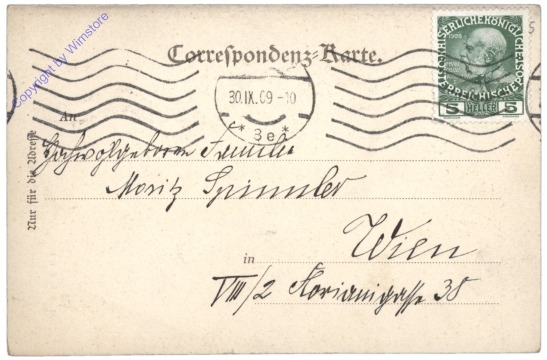 Copyright by Wimstore
Correspondenz-Karte.
KAISERLICHE KÖNIGLICHE
OESTERREICHISCHE POST
1908
5 HELLER 5
30.IX.09-10
* 3e *
An
Nur für die Adresse
Hochwolgeboren Familie
Moritz Spinnler
in Wien
VIII/2 Florianigasse 38